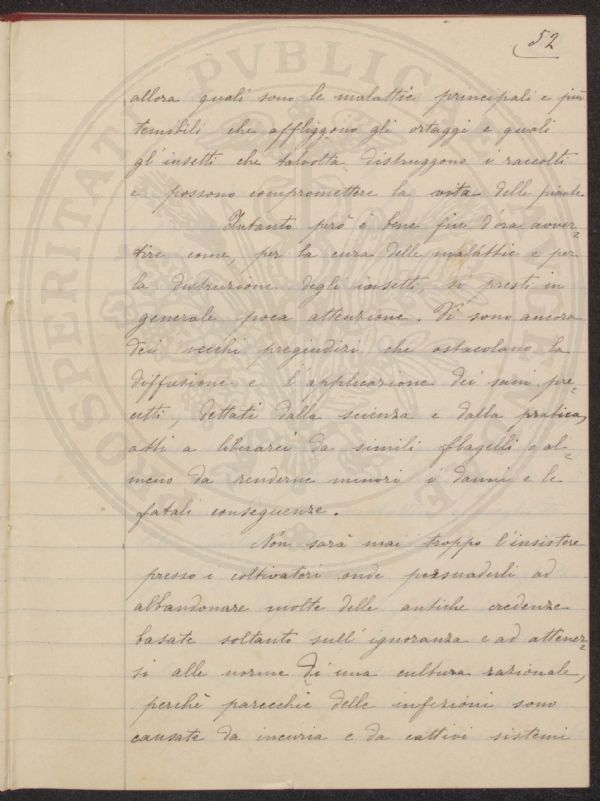 52
allora quali sono le malattie principali e più
temibili che affliggono gli ortaggi e quali
gl'insetti che talvolta distruggono i raccolti
e possono compromettere la vita delle piante
Intanto però è bene fin d'ora avver=
tire come, per la cura delle malattie e per
la distruzione degli insetti, si presti in
generale poca attenzione. Vi sono ancora
dei vecchi pregiudizi che ostacolano la
diffusione e l'applicazione dei sani pre=
cetti, dettati dalla scienza e dalla pratica,
atti a liberarci da simili flagelli o al=
meno da renderne minori i danni e le
fatali conseguenze.
Non sarà mai troppo l'insistere
presso i coltivatori onde persuaderli ad
abbandonare molte delle antiche credenze
basate soltanto sull'ignoranza e ad attener=
si alle norme di una cultura razionale,
perchè parecchie delle infezioni sono
causate da incuria e da cattivi sistemi